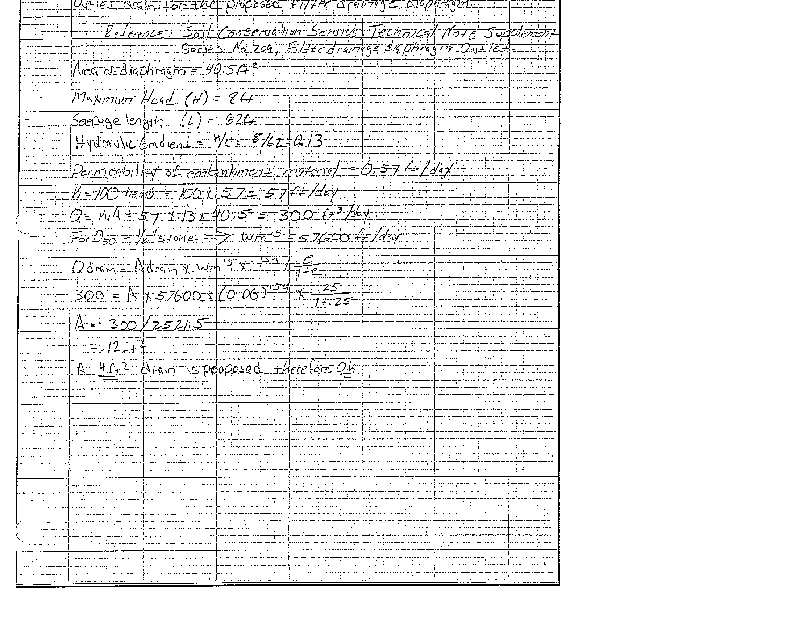 proposed filter drainage diaphragm
Reference: Soil Conservation Service, Technical Note Supplement
Series No. 709, Filter drainage diaphragm Outlet
Area of diaphragm = 40.5 ft²
Maximum Head (H) = 8 ft
Seepage length (L) = 62 ft
Hydraulic Gradient = H/L = 8/62 = 0.13
Permeability of embankment material = 0.57 ft/day
K = 100 = 100 x .57 = 57 ft/day
Q = KiA = 57 x .13 x 40.5 = 300 ft³/day
For D50 = stone = 57600 ft/day
Qdrain = Adrain x
300 = A x 57600 x (0.06)^.54 x .25/1+.25
A = 300/2521.5
= .12 ft²
A 4 ft² drain is proposed therefore Ok